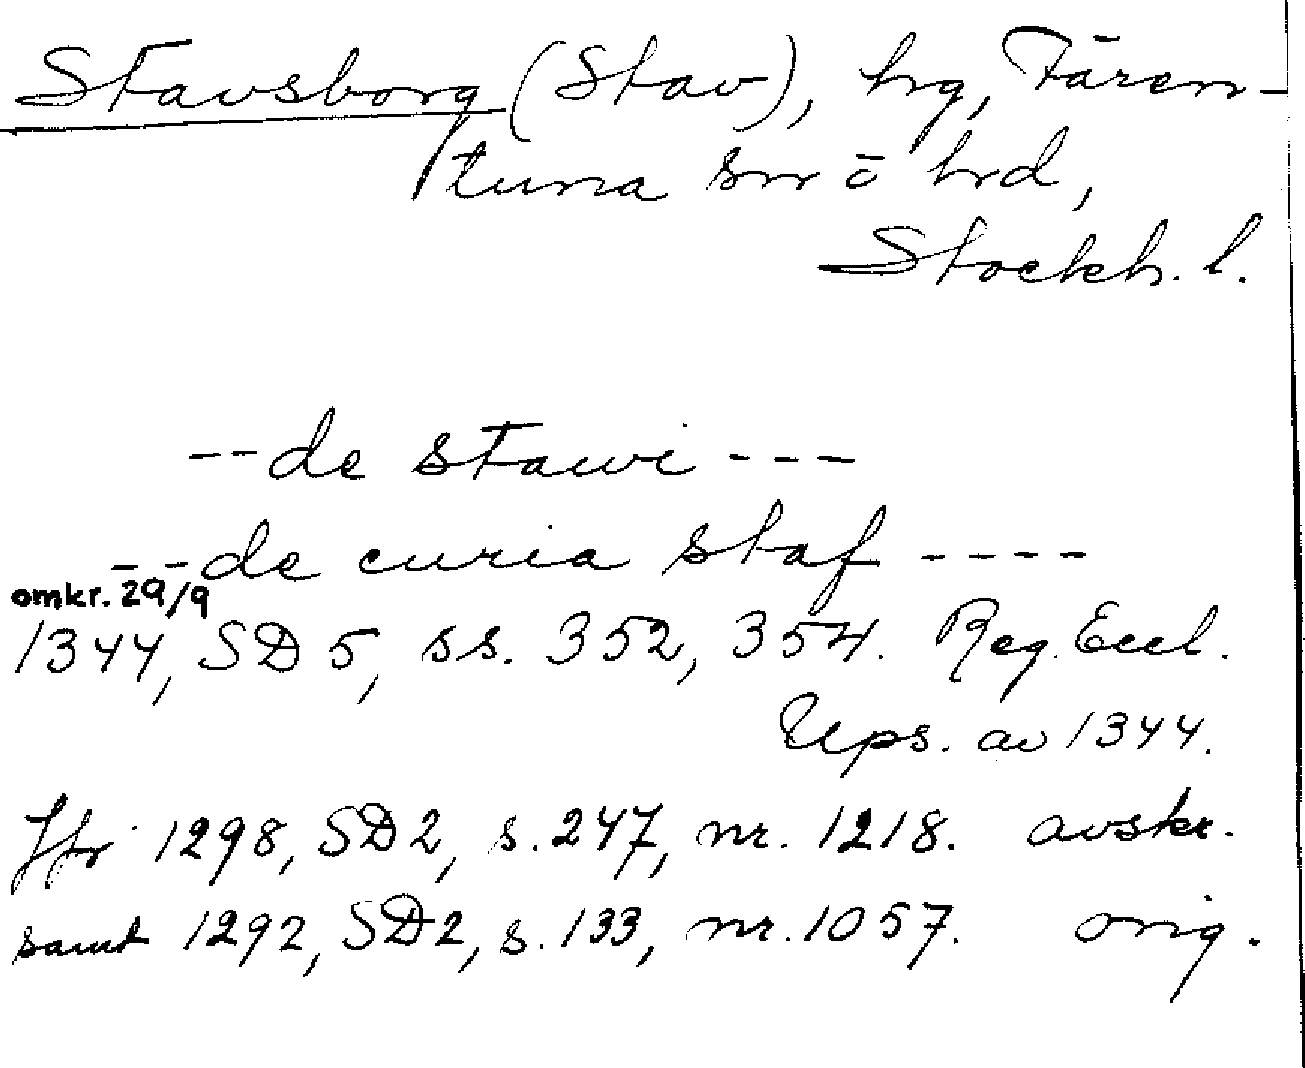 Stavsborg (Stav), hrg, Fären-
tuna sn o hrd,
Stockh. l.
--de stawi---
--de curia staf----
omkr. 29/9
1344, SD 5, ss. 352, 354. Reg. Eccl.
Ups. av 1344.
Jfr 1298, SD 2, s. 247, nr. 1218. avskr.
samt 1292, SD 2, s. 133, nr. 1057. orig.